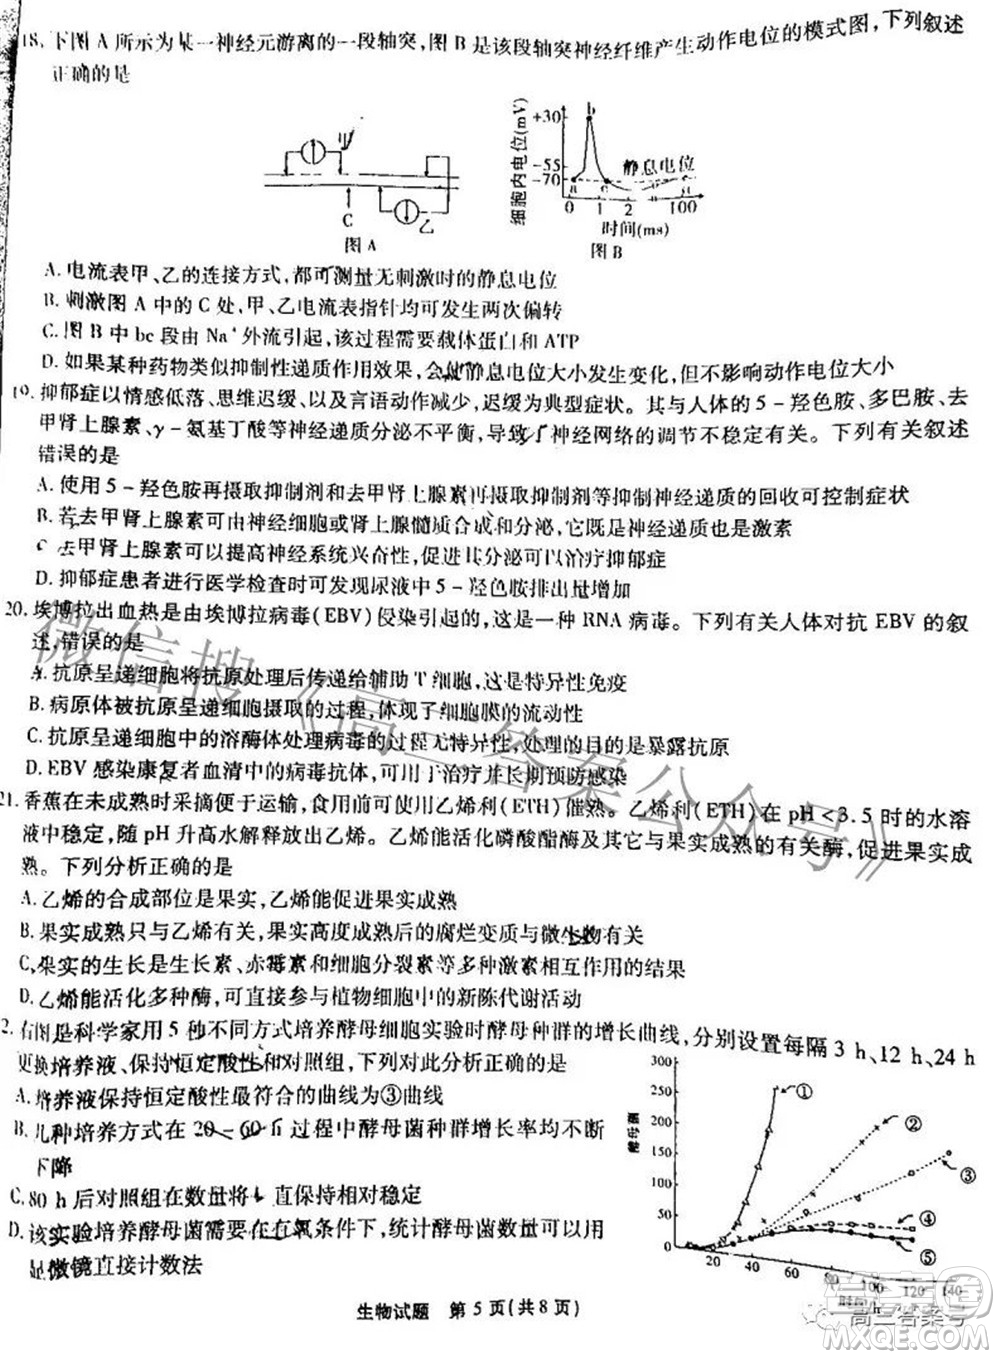 18. 下图 A 所示为某一神经元游离的一段轴突,图 B 是该段轴突神经纤维产生动作电位的模式图,下列叙述
正确的是
甲
C
乙
图 A
细胞内电位(mV)
+30
-55
-70
a
b
c
静息电位
0 1 2 100
时间(ms)
图 B
A. 电流表甲、乙的连接方式,都可测量无刺激时的静息电位
B. 刺激图 A 中的 C 处,甲、乙电流表指针均可发生两次偏转
C. 图 B 中 bc 段由 Na⁺ 外流引起,该过程需要载体蛋白和 ATP
D. 如果某种药物类似抑制性递质作用效果,会使静息电位大小发生变化,但不影响动作电位大小
19. 抑郁症以情感低落、思维迟缓、以及言语动作减少,迟缓为典型症状。其与人体的 5－羟色胺、多巴胺、去
甲肾上腺素、γ－氨基丁酸等神经递质分泌不平衡,导致了神经网络的调节不稳定有关。下列有关叙述
错误的是
A. 使用 5－羟色胺再摄取抑制剂和去甲肾上腺素再摄取抑制剂等抑制神经递质的回收可控制症状
B. 若去甲肾上腺素可由神经细胞或肾上腺髓质合成和分泌,它既是神经递质也是激素
C. 去甲肾上腺素可以提高神经系统兴奋性,促进其分泌可以治疗抑郁症
D. 抑郁症患者进行医学检查时可发现尿液中 5－羟色胺排出量增加
20. 埃博拉出血热是由埃博拉病毒(EBV)侵染引起的,这是一种 RNA 病毒。下列有关人体对抗 EBV 的叙
述,错误的是
A. 抗原呈递细胞将抗原处理后传递给辅助 T 细胞,这是特异性免疫
B. 病原体被抗原呈递细胞摄取的过程,体现了细胞膜的流动性
C. 抗原呈递细胞中的溶酶体处理病毒的过程无特异性,处理的目的是暴露抗原
D. EBV 感染康复者血清中的病毒抗体,可用于治疗并长期预防感染
21. 香蕉在未成熟时采摘便于运输,食用前可使用乙烯利(ETH)催熟。乙烯利(ETH)在 pH<3.5 时的水溶
液中稳定,随 pH 升高水解释放出乙烯。乙烯能活化磷酸酯酶及其它与果实成熟的有关酶,促进果实成
熟。下列分析正确的是
A. 乙烯的合成部位是果实,乙烯能促进果实成熟
B. 果实成熟只与乙烯有关,果实高度成熟后的腐烂变质与微生物有关
C. 果实的生长是生长素、赤霉素和细胞分裂素等多种激素相互作用的结果
D. 乙烯能活化多种酶,可直接参与植物细胞中的新陈代谢活动
2. 右图是科学家用 5 种不同方式培养酵母细胞实验时酵母种群的增长曲线,分别设置每隔 3 h、12 h、24 h
更换培养液、保持恒定酸性和对照组,下列对此分析正确的是
A. 培养液保持恒定酸性最符合的曲线为③曲线
B. 几种培养方式在 20－60 h 过程中酵母菌种群增长率均不断
下降
C. 80 h 后对照组在数量将一直保持相对稳定
D. 该实验培养酵母菌需要在有氧条件下,统计酵母菌数量可以用
显微镜直接计数法
300
250
200
150
100
50
0
酵母菌
① ② ③ ④ ⑤
20 40 60 80 100 120 140
时间/h
生物试题 第 5 页(共 8 页)
微信搜《高三答案公众号》
高三答案号
MXQE.COM
答案圈